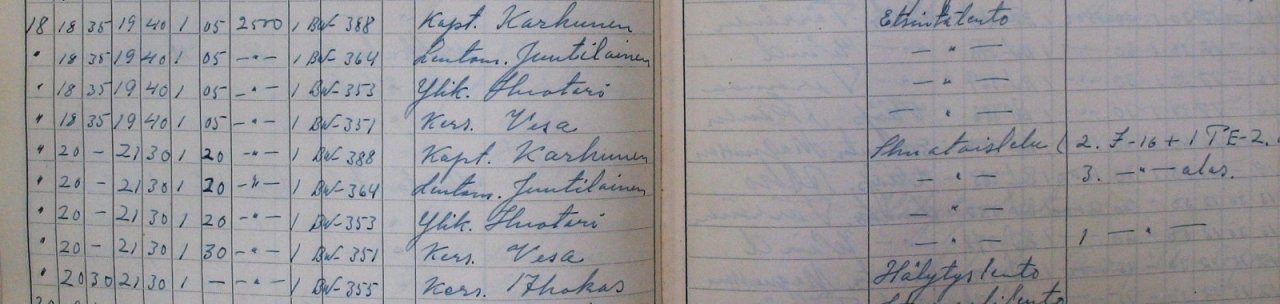 18 18 35 19 40 1 05 2500 1 BW-388 Kapt. Karhunen Etsintälento
" 18 35 19 40 1 05 —"— 1 BW-364 Lentom. Juutilainen — " —
" 18 35 19 40 1 05 —"— 1 BW-353 Ylik. Huotari — " —
" 18 35 19 40 1 05 —"— 1 BW-351 Kers. Vesa — " —
" 20 - 21 30 1 20 —"— 1 BW-388 Kapt. Karhunen Ilmataistelu (2. J-16 + 1 TE-2.
" 20 - 21 30 1 20 —"— 1 BW-364 Lentom. Juutilainen — " — 3. —"— alas.
" 20 - 21 30 1 20 —"— 1 BW-353 Ylik. Huotari — " —
" 20 - 21 30 1 30 —"— 1 BW-351 Kers. Vesa — " — 1 — " —
" 20 30 21 30 1 — —"— 1 BW-355 Kers. Ahokas Hälytyslento